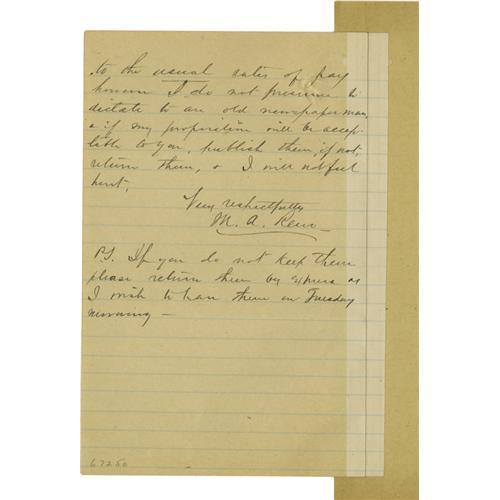 to the usual rates of pay
however I do not presume to
dictate to an old newspaper man,
& if my proposition will be accep-
table to you, publish them, if not,
return them, & I will not feel
hurt,
Very respectfully
M. A. Reno
P.S. If you do not keep them
please return them by express as
I wish to have them on Tuesday
morning —
67250